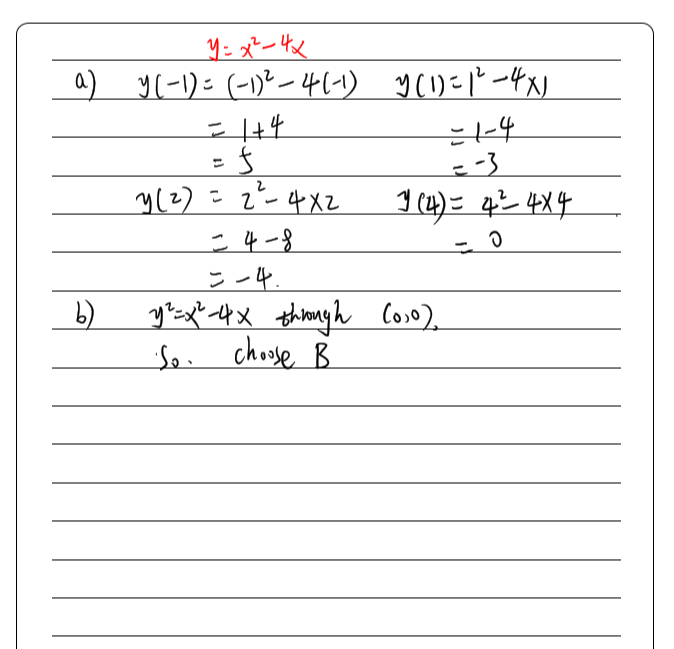 y = x² - 4x
a) y(-1) = (-1)² - 4(-1) y(1) = 1² - 4×1
= 1+4 = 1-4
= 5 = -3
y(2) = 2² - 4×2 y(4) = 4² - 4×4
= 4-8 = 0
= -4.
b) y²=x²-4x through (0,0),
So. choose B